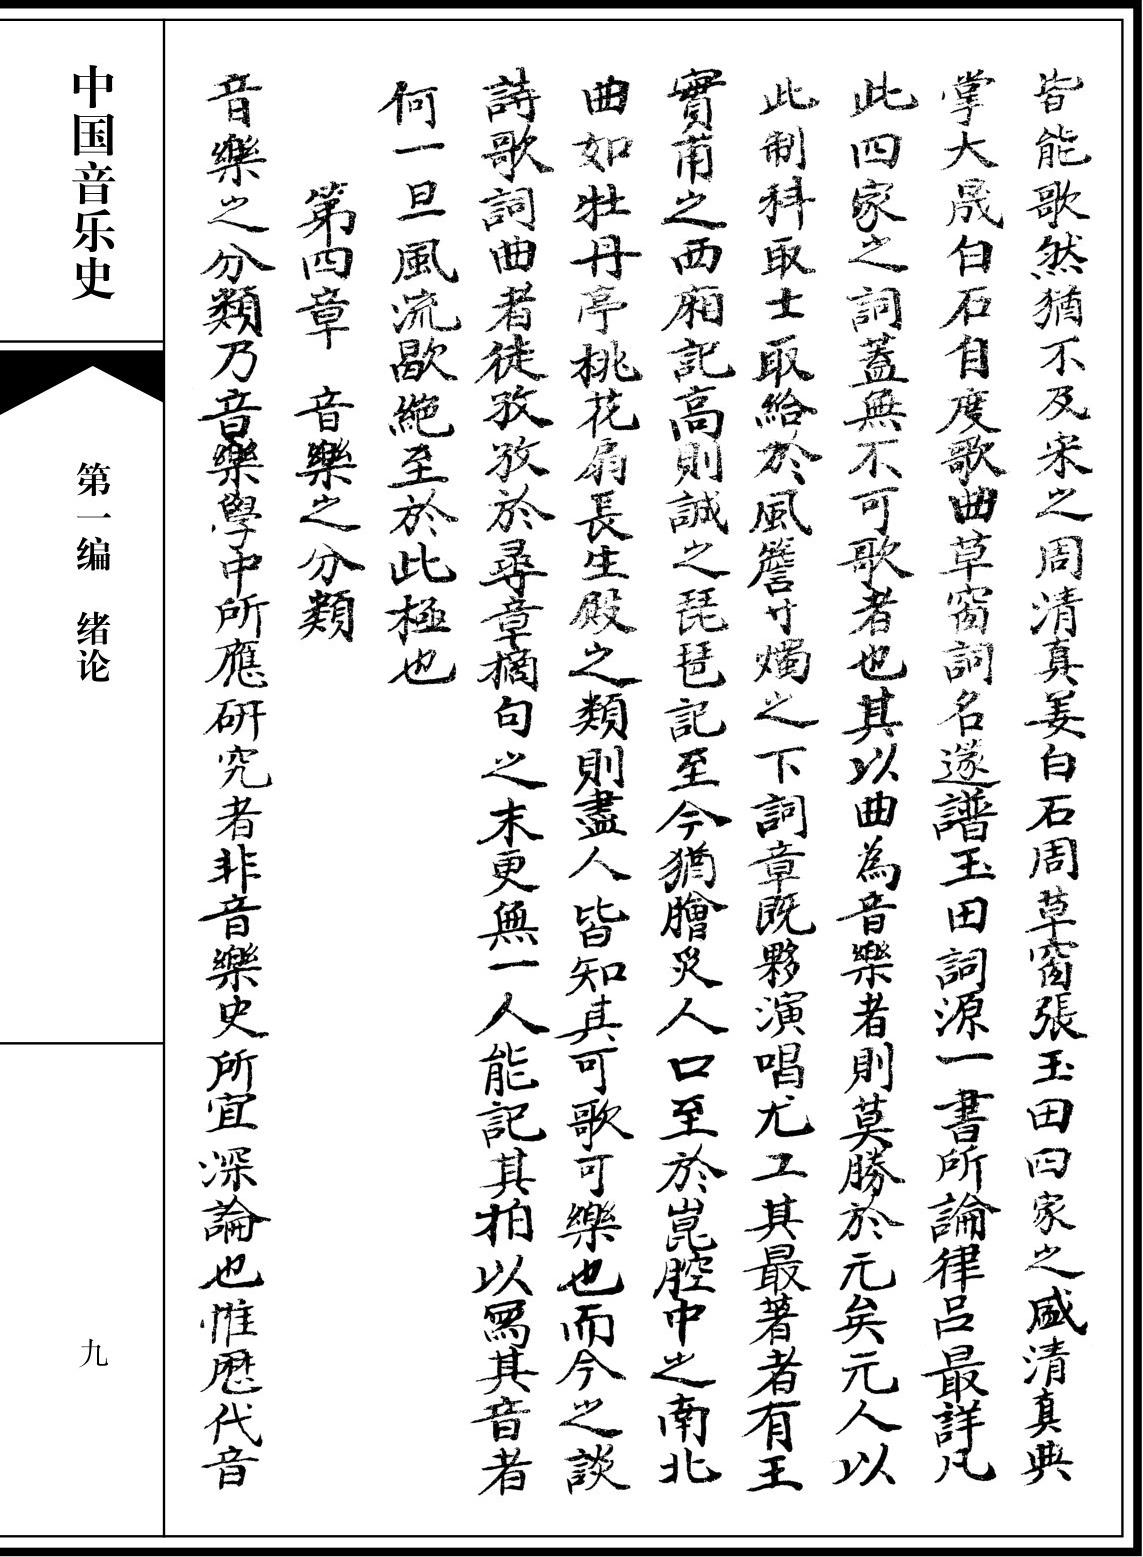 皆能歌然猶不及宋之周清真姜白石周草窗張玉田四家之盛清真典
掌大晟白石自度歌曲草窗詞名邃譜玉田詞源一書所論律呂最詳凡
此四家之詞蓋無不可歌者也其以曲為音樂者則莫勝於元矣元人以
此制科取士取給於風簷寸燭之下詞章既夥演唱尤工其最著者有王
實甫之西廂記高則誠之琵琶記至今猶膾炙人口至於崑腔中之南北
曲如牡丹亭桃花扇長生殿之類則盡人皆知其可歌可樂也而今之談
詩歌詞曲者徒孜孜於尋章摘句之末更無一人能記其拍以寫其音者
何一旦風流歇絕至於此極也
第四章 音樂之分類
音樂之分類乃音樂學中所應研究者非音樂史所宜深論也惟歷代音
中国音乐史
第一编 绪论
九